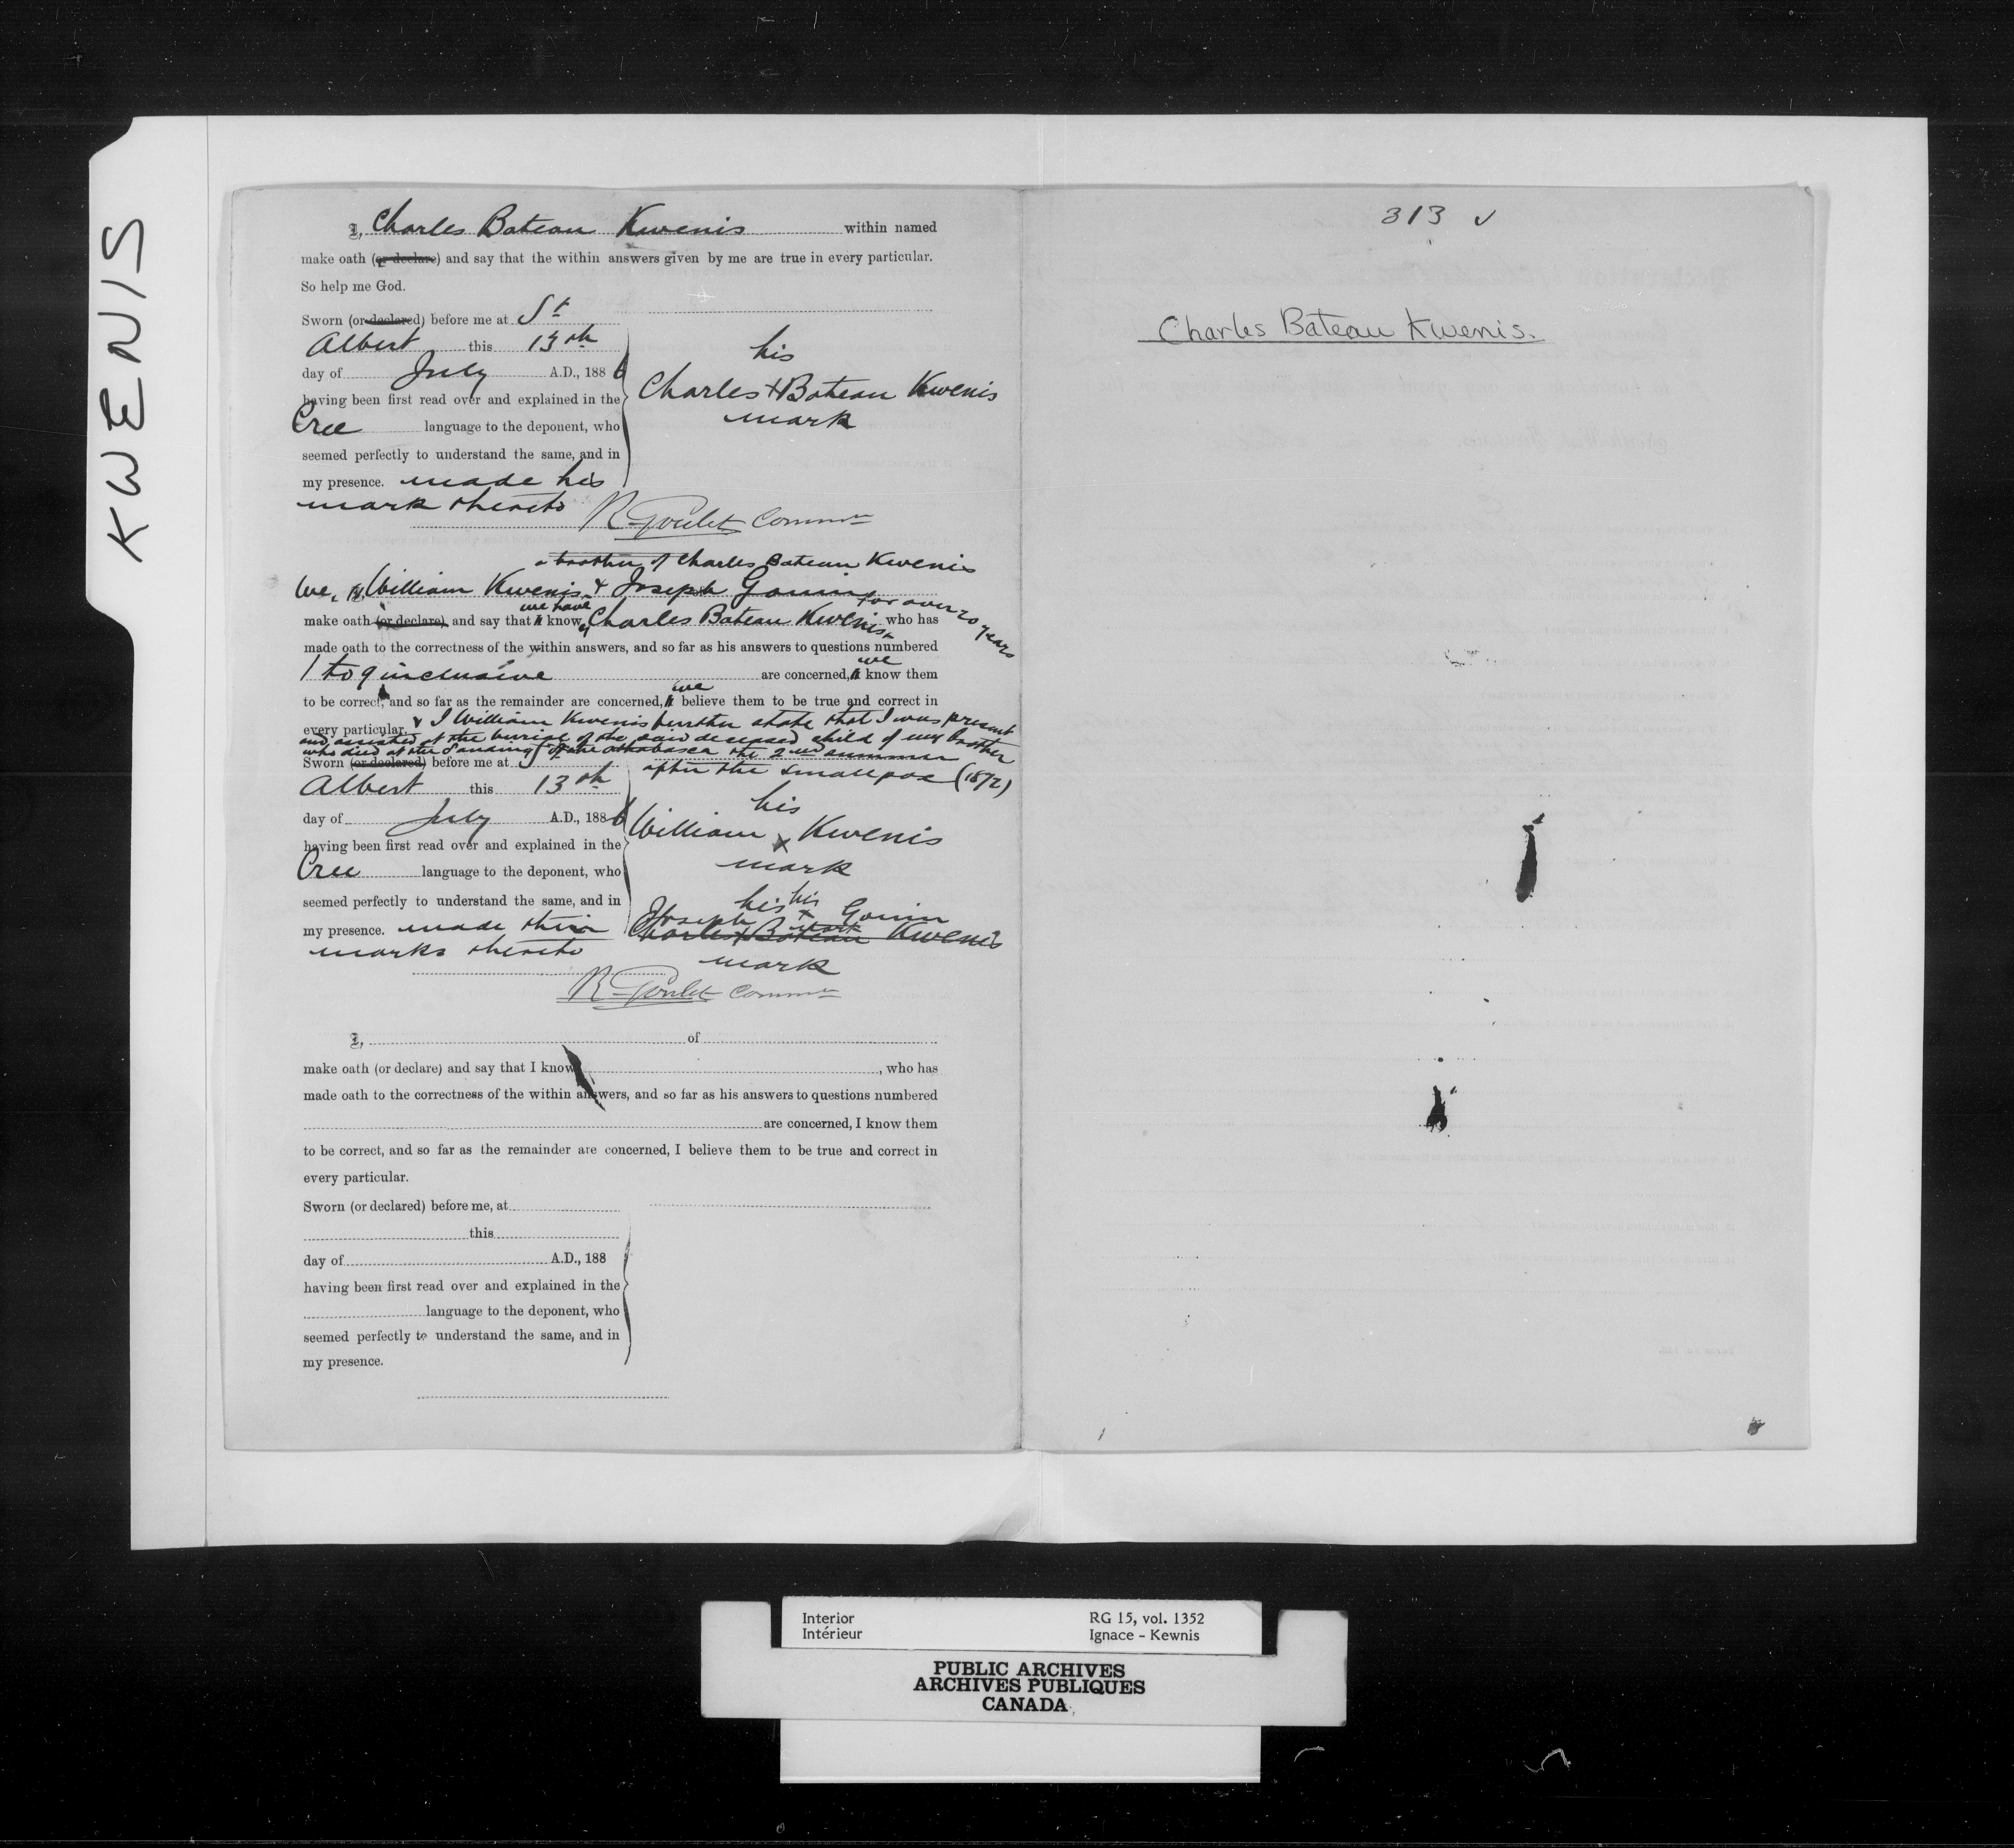 KWENIS
I, Charles Bateau Kwenis within named
make oath (or declare) and say that the within answers given by me are true in every particular.
So help me God.
Sworn (or declared) before me at St
Albert this 13th
day of July A.D., 1886
having been first read over and explained in the
Cree language to the deponent, who
seemed perfectly to understand the same, and in
my presence. made his
mark thereto
his
Charles + Bateau Kwenis
mark
R Goulet Commr
a brother of Charles Bateau Kwenis
We, I, William Kwenis & Joseph Gouin
for over 20 years
we have
make oath (or declare) and say that I know Charles Bateau Kwenis who has
made oath to the correctness of the within answers, and so far as his answers to questions numbered
1 to 9 inclusive are concerned, I we know them
to be correct, and so far as the remainder are concerned, I we believe them to be true and correct in
every particular. & I William Kwenis further state that I was present
and assisted at the burial of the said deceased child of my brother
who died at the Landing of the Athabasca the 2nd summer
after the small pox (1872)
Sworn (or declared) before me at St
Albert this 13th
day of July A.D., 1886
having been first read over and explained in the
Cree language to the deponent, who
seemed perfectly to understand the same, and in
my presence. made their
marks thereto
his
William x Kwenis
mark
his his
Joseph x Gouin
mark
Charles + Bateau Kwenis
mark
R Goulet Commr
I, of
make oath (or declare) and say that I know , who has
made oath to the correctness of the within answers, and so far as his answers to questions numbered
are concerned, I know them
to be correct, and so far as the remainder are concerned, I believe them to be true and correct in
every particular.
Sworn (or declared) before me, at
this
day of A.D., 188
having been first read over and explained in the
language to the deponent, who
seemed perfectly to understand the same, and in
my presence.
313 ✓
Charles Bateau Kwenis.
Interior
Intérieur
RG 15, vol. 1352
Ignace - Kewnis
PUBLIC ARCHIVES
ARCHIVES PUBLIQUES
CANADA